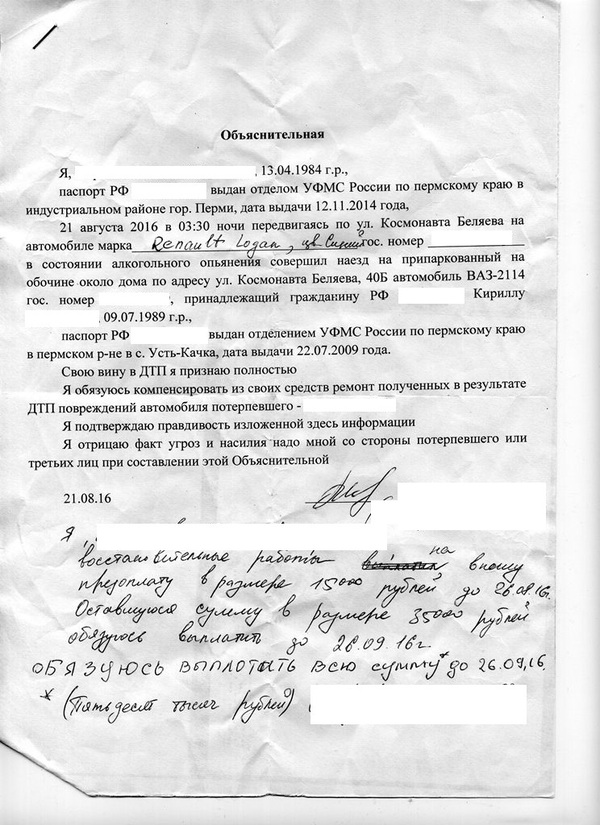 Объяснительная
Я, , 13.04.1984 г.р.,
паспорт РФ выдан отделом УФМС России по пермскому краю в
индустриальном районе гор. Перми, дата выдачи 12.11.2014 года,
21 августа 2016 в 03:30 ночи передвигаясь по ул. Космонавта Беляева на
автомобиле марка Renault Logan, цв. Синий гос. номер
в состоянии алкогольного опьянения совершил наезд на припаркованный на
обочине около дома по адресу ул. Космонавта Беляева, 40Б автомобиль ВАЗ-2114
гос. номер , принадлежащий гражданину РФ Кириллу
, 09.07.1989 г.р.,
паспорт РФ выдан отделением УФМС России по пермскому краю
в пермском р-не в с. Усть-Качка, дата выдачи 22.07.2009 года.
Свою вину в ДТП я признаю полностью
Я обязуюсь компенсировать из своих средств ремонт полученных в результате
ДТП повреждений автомобиля потерпевшего -
Я подтверждаю правдивость изложенной здесь информации
Я отрицаю факт угроз и насилия надо мной со стороны потерпевшего или
третьих лиц при составлении этой Объяснительной
21.08.16
Я
на
восстановительные работы вношу
предоплату в размере 15000 рублей до 26.08.16г.
Оставшуюся сумму в размере 35000 рублей
обязуюсь выплатить до 26.09.16г.
ОБЯЗУЮСЬ ВЫПЛОТИТЬ ВСЮ СУММУ* до 26.09.16.
* (Пятьдесят тысяч рублей)